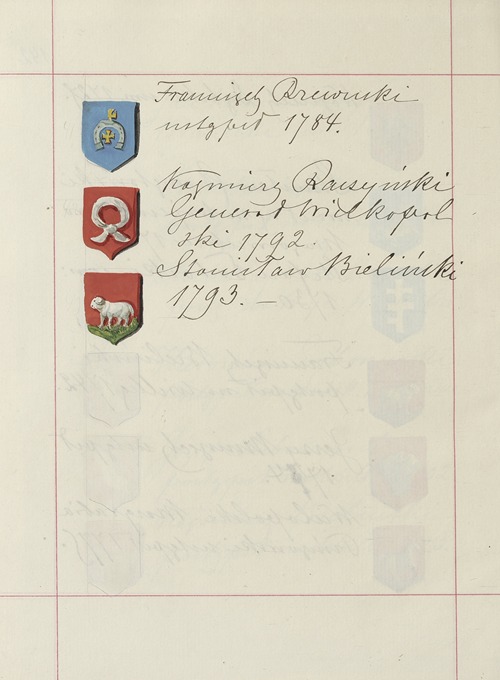 Franciszek Rzewuski
ustąpił 1784.
Kazimierz Raczyński
Generał Wielkopol
ski 1792.
Stanisław Bieliński
1793. —